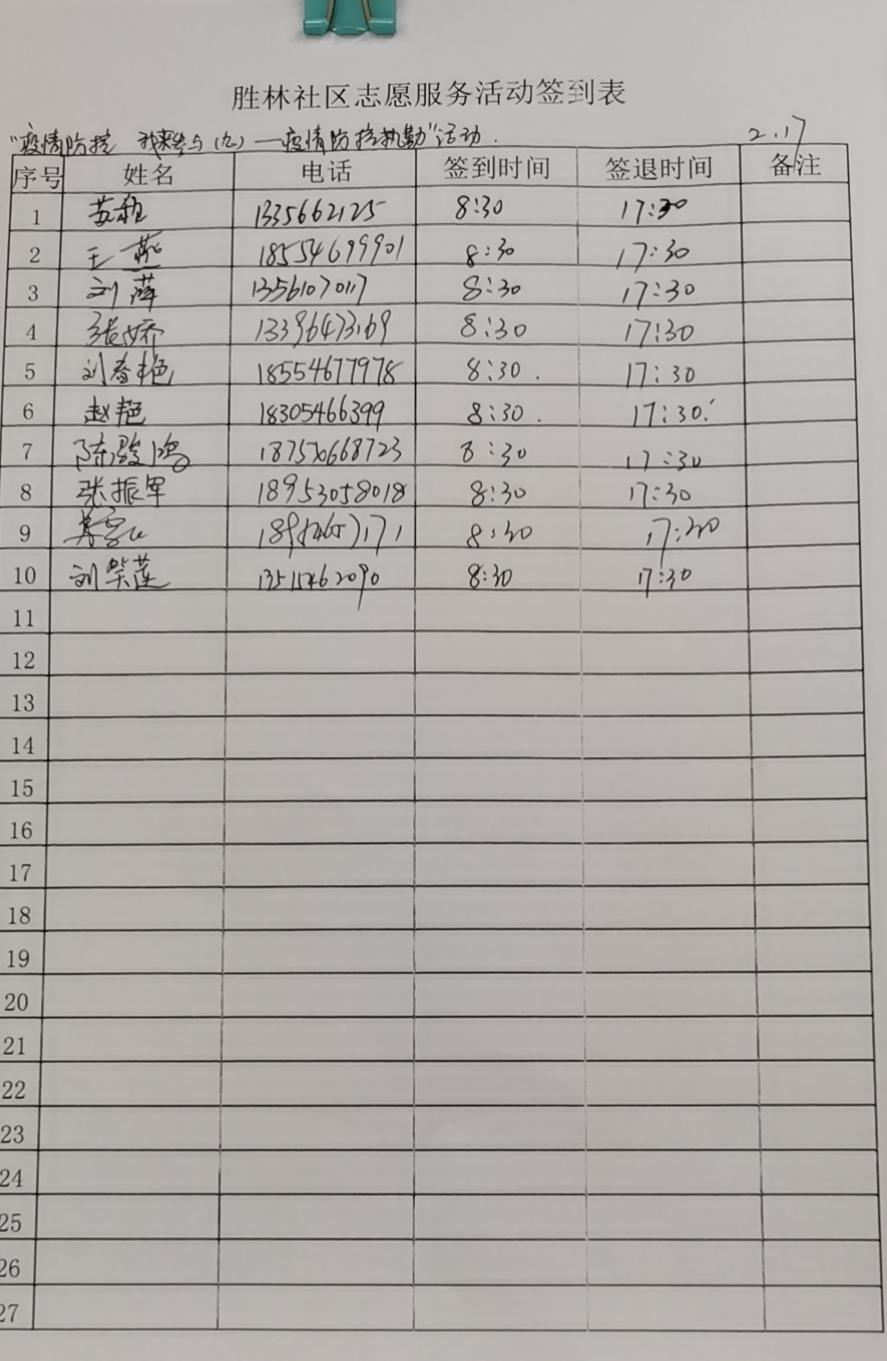 胜林社区志愿服务活动签到表
"疫情防控 我来参与(九)—疫情防控执勤"活动. 2.17
序号 姓名 电话 签到时间 签退时间 备注
1 苏 1335662125 8:30 17:30
2 王燕 18554699901 8:30 17:30
3 刘萍 13561070117 8:30 17:30
4 张娇 13396473169 8:30 17:30
5 刘春艳 18554677978 8:30. 17:30
6 赵艳 18305466399 8:30. 17:30.
7 陈鸿 8:30 17:30
8 张振军 18953058018 8:30 17:30
9 8:30 17:30
10 刘荣莲 13515462090 8:30 17:30
11
12
13
14
15
16
17
18
19
20
21
22
23
24
25
26
27